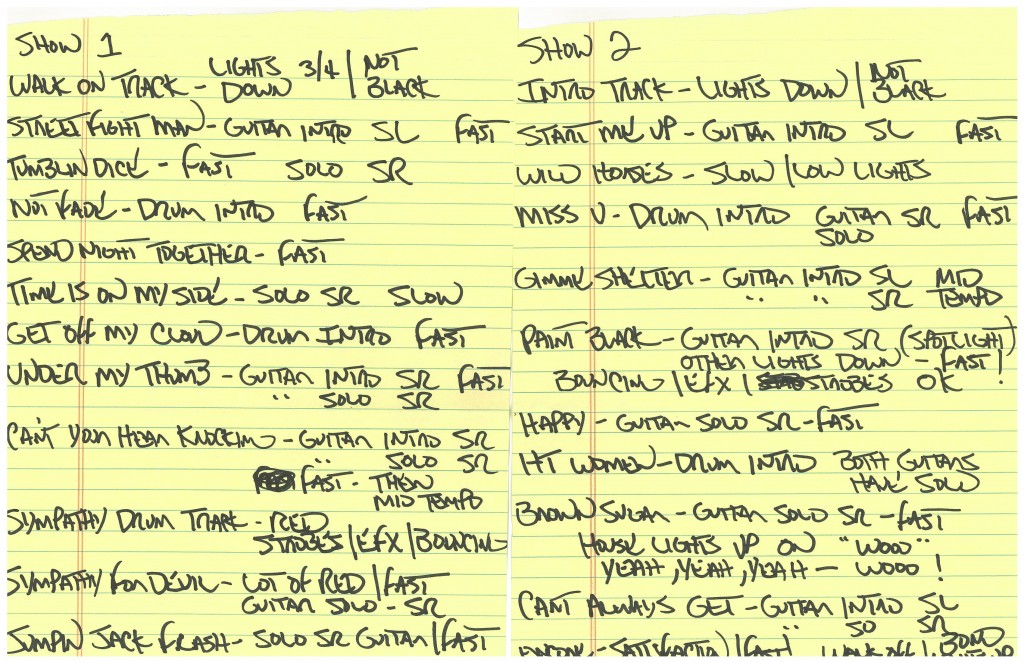 SHOW 1
WALK ON TRACK - LIGHTS DOWN 3/4 | NOT BLACK
STREET FIGHT MAN - GUITAR INTRO SL FAST
TUMBLIN DICE - FAST SOLO SR
NOT FADE - DRUM INTRO FAST
SPEND NIGHT TOGETHER - FAST
TIME IS ON MY SIDE - SOLO SR SLOW
GET OFF MY CLOUD - DRUM INTRO FAST
UNDER MY THUMB - GUITAR INTRO SR FAST
" SOLO SR
CAN'T YOU HEAR KNOCKING - GUITAR INTRO SR
" SOLO SR
FAST - THEN
MID TEMPO
SYMPATHY DRUM TRACK - RED
STROBES | EFX | BOUNCING
SYMPATHY FOR DEVIL - LOT OF RED | FAST
GUITAR SOLO - SR
JUMPIN JACK FLASH - SOLO SR GUITAR | FAST
SHOW 2
INTRO TRACK - LIGHTS DOWN | NOT BLACK
START ME UP - GUITAR INTRO SL FAST
WILD HORSES - SLOW | LOW LIGHTS
MISS U - DRUM INTRO GUITAR SR FAST
SOLO
GIMME SHELTER - GUITAR INTRO SL MID
" " SR TEMPO
PAINT BLACK - GUITAR INTRO SR (SPOTLIGHT)
OTHER LIGHTS DOWN - FAST!
BOUNCING | EFX | STROBES OK !
HAPPY - GUITAR SOLO SR - FAST
HT WOMEN - DRUM INTRO BOTH GUITARS
HAVE SOLO
BROWN SUGAR - GUITAR SOLO SR - FAST
HOUSE LIGHTS UP ON "WOOO"
YEAH, YEAH, YEAH - WOOO!
CANT ALWAYS GET - GUITAR INTRO SL
" SO SR
- SATISFACTIO | FAST | WALK OFF |